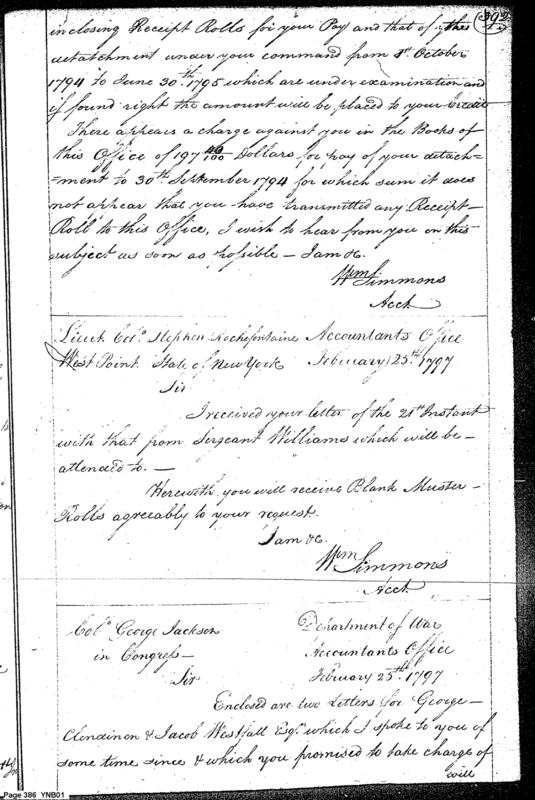 392
inclosing Receipt Rolls for your Pay and that of the
detatchment under your command from 1st October
1794 to June 30th 1795 which are under examination and
if found right the amount will be placed to your Credit
There appears a charge against you in the Books of
this Office of 197 46/100 Dollars for pay of your detach=
=ment to 30th September 1794 for which sum it does
not appear that you have transmitted any Receipt
Roll to this Office, I wish to hear from you on this
subject as soon as possible — I am &c.
Wm Simmons
Acct
Lieut. Colo. Stephen Rochefontaine Accountants Office
West Point State of New York February 25th 1797
Sir
I received your letter of the 21st Instant
with that from Sergeant Williams which will be
attended to. —
Herewith you will receive Blank Muster
Rolls agreeably to your request.
I am &c.
Wm Simmons
Acct.
Colo. George Jackson Department of War
in Congress Accountants Office
Sir February 25th 1797
Enclosed are two Letters for George
Clendinen & Jacob Westfall Esqr. which I spoke to you of
some time since & which you promised to take charge of
will
Page 386 YNB01